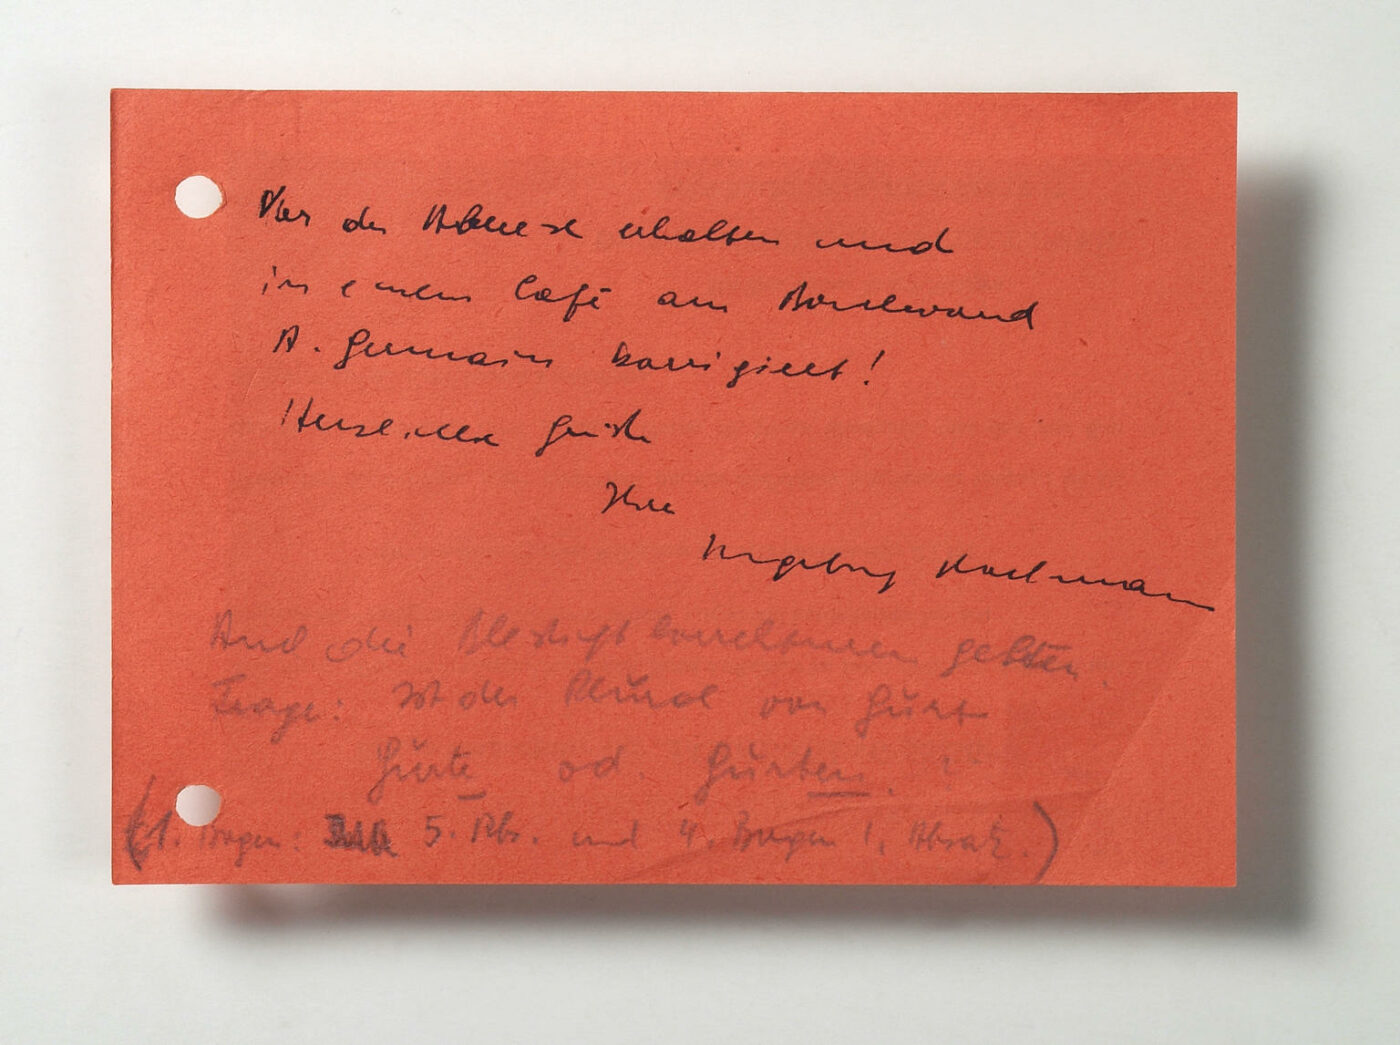 Vor der Abreise erhalten und
in einem Café am Boulevard
St. Germain korrigiert!
Herzliche Grüße
Ihre
Ingeborg Bachmann
Auch die Bleistiftkorrekturen gelten.
Frage: Ist der Plural von Gurt
Gurte od. Gurten ?
(1. Bogen: 5. Abs. und 4. Bogen 1. Absatz.)